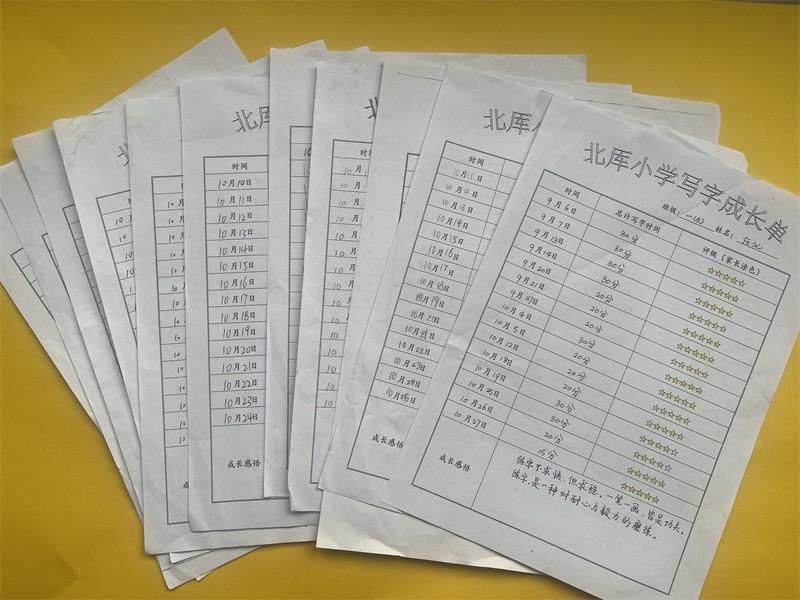 北厍
时间
10月10日
10月11日
10月12日
10月13日
10月14日
10月15日
10月16日
10月17日
10月18日
10月19日
10月20日
10月21日
10月22日
10月23日
10月24日
成长感悟
北厍小
时间
10月11日
10月12日
10月13日
10月14日
10月15日
10月16日
10月17日
10月18日
10月19日
10月20日
10月21日
10月22日
10月23日
10月24日
10月25日
成长感悟
北厍小学写字成长单
班级：一(5) 姓名：
时间 总计写字时间 评级（家长涂色）
9月6日 30分 ☆☆☆☆☆
9月7日 30分 ☆☆☆☆☆
9月13日 30分 ☆☆☆☆☆
9月14日 30分 ☆☆☆☆☆
9月20日 20分 ☆☆☆☆☆
9月21日 20分 ☆☆☆☆☆
9月27日 20分 ☆☆☆☆☆
10月4日 30分 ☆☆☆☆☆
10月5日 20分 ☆☆☆☆☆
10月12日 20分 ☆☆☆☆☆
10月18日 20分 ☆☆☆☆☆
10月19日 30分 ☆☆☆☆☆
10月25日 30分 ☆☆☆☆☆
10月26日 20分 ☆☆☆☆☆
10月27日 15分 ☆☆☆☆☆
成长感悟
练字不求快，但求稳，一笔一画，皆是功夫。
练字，是一种对耐心与毅力的磨练。